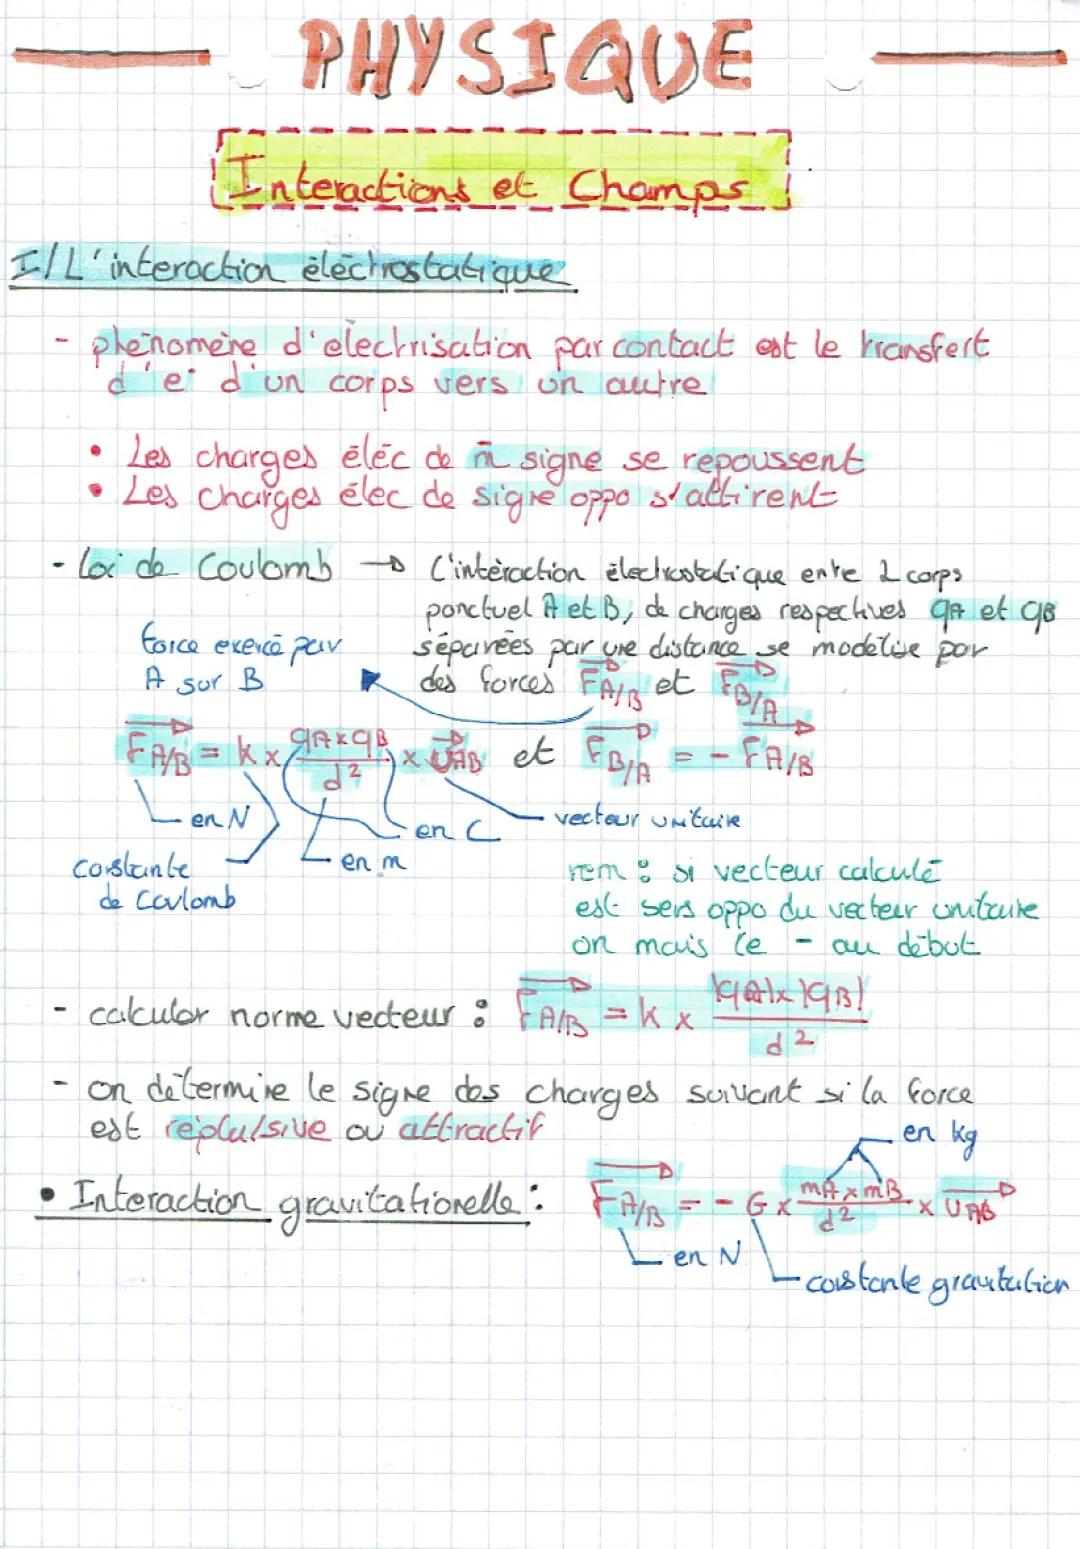 PHYSIQUE
Interactions et Champs
I/ L'interaction éléctrostatique
- phénomène d'electrisation par contact est le transfert
d'e- d'un corps vers un autre
• Les charges éléc de m̄ signe se repoussent
• Les charges élec de signe oppo s'attirent
- Loi de Coulomb → L'intéraction électrostatique entre 2 corps
ponctuel A et B, de charges respectives qA et qB
séparées par une distance se modélise par
des forces F⃗A/B et F⃗B/A
force exercé par
A sur B
F⃗A/B = k × qA×qB / d² × U⃗AB et F⃗B/A = - F⃗A/B
en N
en C
vecteur unitaire
en m
constante
de Coulomb
rem : si vecteur calculé
est sens oppo du vecteur unitaire
on mais le - au début
- calculer norme vecteur : F⃗A/B = k × |qA|×|qB| / d²
- on détermine le signe des charges suivant si la force
est réplulsive ou attractif
en kg
• Interaction gravitationelle : F⃗A/B = - G × mA×mB / d² × U⃗AB
en N
constante gravitation